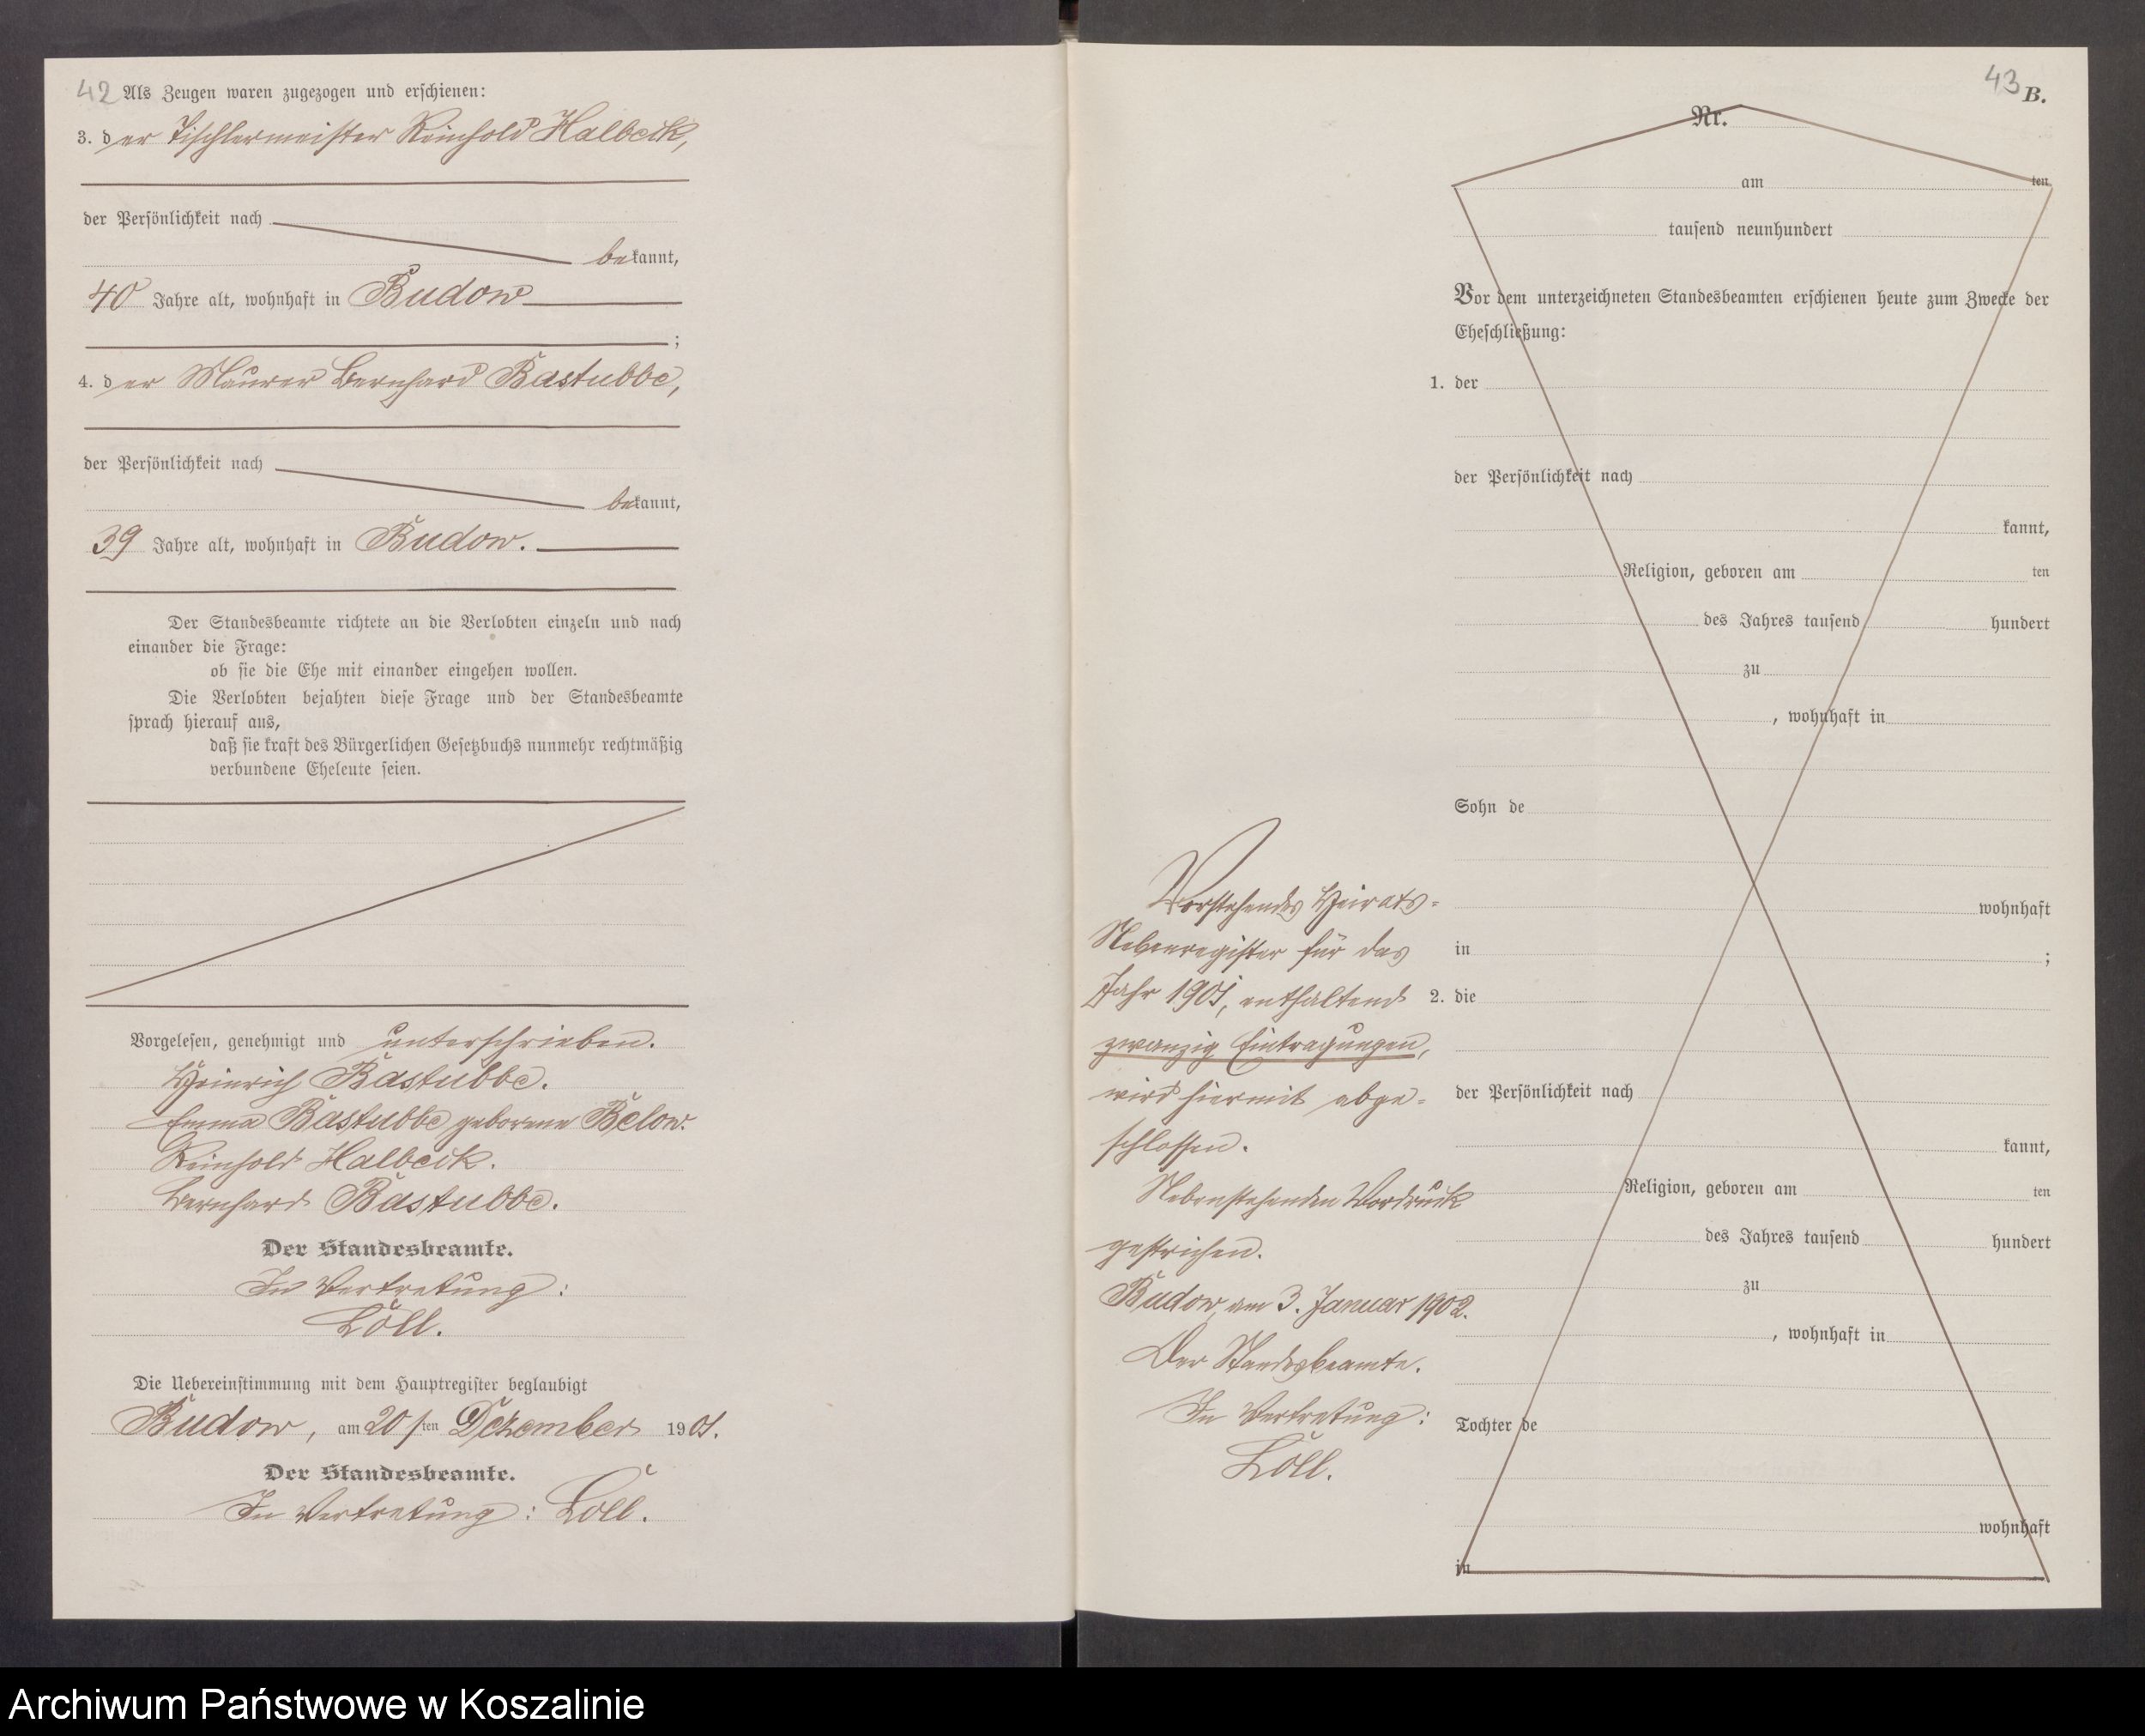 42 Als Zeugen waren zugezogen und erschienen:
3. der Tischlermeister Reinhold Halbeik,
der Persönlichkeit nach
bekannt,
40 Jahre alt, wohnhaft in Budow
;
4. der Maurer Bernhard Bastubbe,
der Persönlichkeit nach
bekannt,
39 Jahre alt, wohnhaft in Budow.
Der Standesbeamte richtete an die Verlobten einzeln und nach
einander die Frage:
ob sie die Ehe mit einander eingehen wollen.
Die Verlobten bejahten diese Frage und der Standesbeamte
sprach hierauf aus,
daß sie kraft des Bürgerlichen Gesetzbuchs nunmehr rechtmäßig
verbundene Eheleute seien.
Vorgelesen, genehmigt und unterschrieben.
Heinrich Bastubbe.
Emma Bastubbe geborene Below.
Reinhold Halbeik.
Bernhard Bastubbe.
Der Standesbeamte.
In Vertretung:
Löll.
Die Uebereinstimmung mit dem Hauptregister beglaubigt
Budow, am 20ten Dezember 1901.
Der Standesbeamte.
In Vertretung: Löll.
43 B.
Nr.
am ten
tausend neunhundert
Vor dem unterzeichneten Standesbeamten erschienen heute zum Zwecke der
Eheschließung:
1. der
der Persönlichkeit nach
kannt,
Religion, geboren am ten
des Jahres tausend hundert
zu
, wohnhaft in
Sohn de
wohnhaft
in ;
2. die
der Persönlichkeit nach
kannt,
Religion, geboren am ten
des Jahres tausend hundert
zu
, wohnhaft in
Tochter de
wohnhaft
in
Vorstehendes Heirats-
Nebenregister für das
Jahr 1901, enthaltend
zwanzig Eintragungen,
wird hiermit abge-
schlossen.
Nebenstehenden Vordruck
gestrichen.
Budow, am 3. Januar 1902.
Der Standesbeamte.
In Vertretung:
Löll.
Archiwum Państwowe w Koszalinie